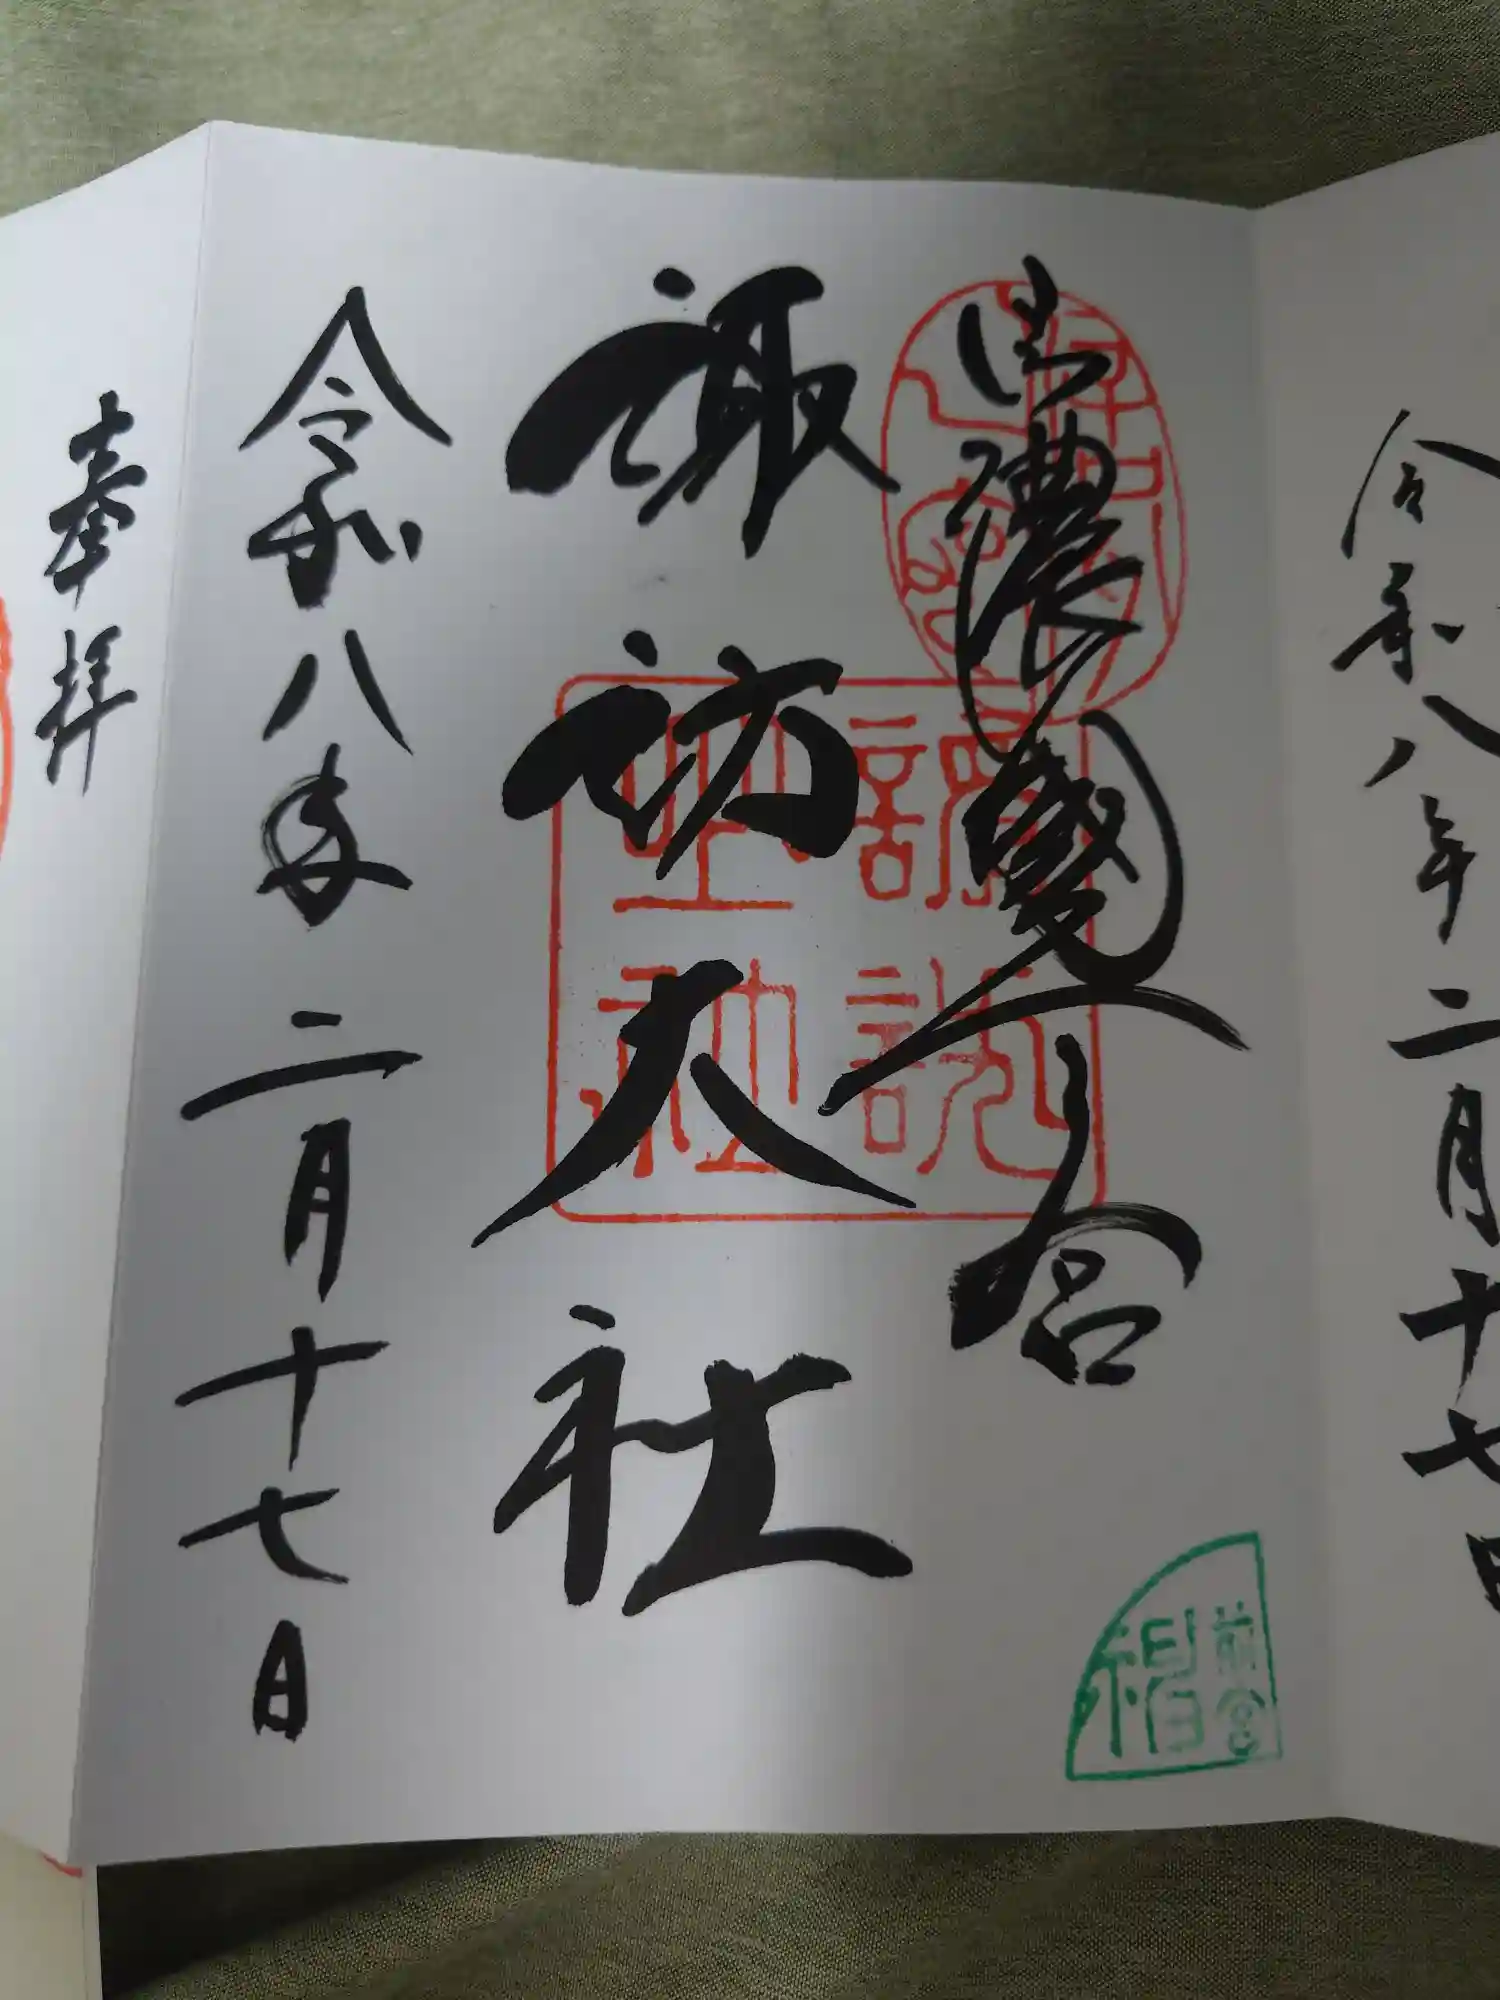 令和八年二月十七日
信濃國一之宮
諏訪大社
令和八年二月十七日
奉拝
前宮